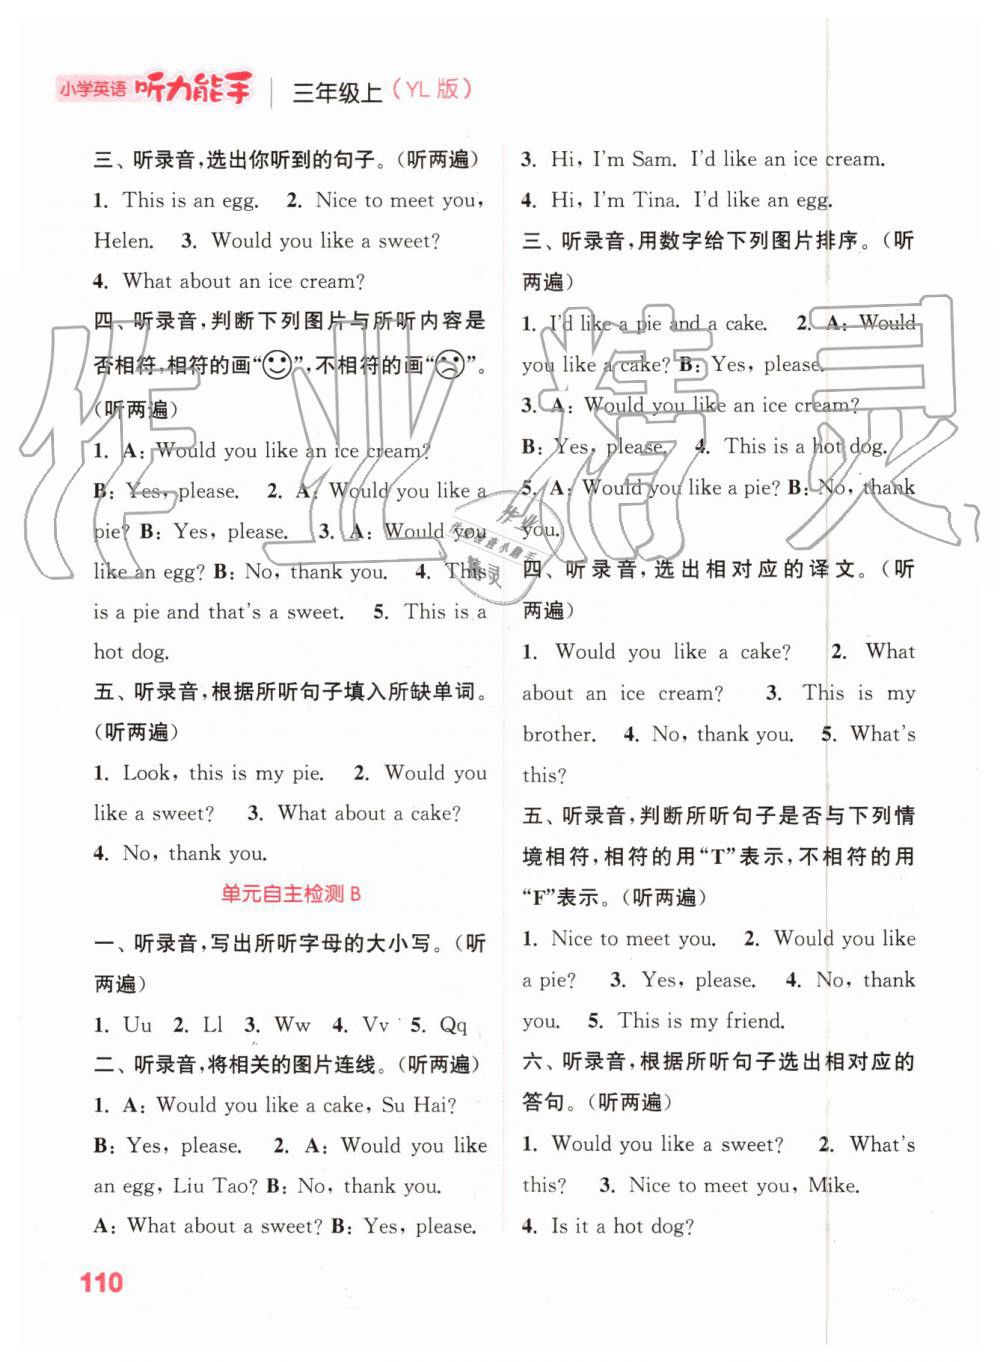 小学英语 听力能手 三年级上（YL 版）
三、听录音，选出你听到的句子。（听两遍）
1. This is an egg. 2. Nice to meet you,
Helen. 3. Would you like a sweet?
4. What about an ice cream?
四、听录音，判断下列图片与所听内容是
否相符，相符的画“☺”，不相符的画“☹”。
（听两遍）
1. A: Would you like an ice cream?
B: Yes, please. 2. A: Would you like a
pie? B: Yes, please. 3. A: Would you
like an egg? B: No, thank you. 4. This
is a pie and that's a sweet. 5. This is a
hot dog.
五、听录音，根据所听句子填入所缺单词。
（听两遍）
1. Look, this is my pie. 2. Would you
like a sweet? 3. What about a cake?
4. No, thank you.
单元自主检测 B
一、听录音，写出所听字母的大小写。（听
两遍）
1. Uu 2. Ll 3. Ww 4. Vv 5. Qq
二、听录音，将相关的图片连线。（听两遍）
1. A: Would you like a cake, Su Hai?
B: Yes, please. 2. A: Would you like
an egg, Liu Tao? B: No, thank you.
A: What about a sweet? B: Yes, please.
3. Hi, I'm Sam. I'd like an ice cream.
4. Hi, I'm Tina. I'd like an egg.
三、听录音，用数字给下列图片排序。（听
两遍）
1. I'd like a pie and a cake. 2. A: Would
you like a cake? B: Yes, please.
3. A: Would you like an ice cream?
B: Yes, please. 4. This is a hot dog.
5. A: Would you like a pie? B: No, thank
you.
四、听录音，选出相对应的译文。（听
两遍）
1. Would you like a cake? 2. What
about an ice cream? 3. This is my
brother. 4. No, thank you. 5. What's
this?
五、听录音，判断所听句子是否与下列情
境相符，相符的用“T”表示，不相符的用
“F”表示。（听两遍）
1. Nice to meet you. 2. Would you like
a pie? 3. Yes, please. 4. No, thank
you. 5. This is my friend.
六、听录音，根据所听句子选出相对应的
答句。（听两遍）
1. Would you like a sweet? 2. What's
this? 3. Nice to meet you, Mike.
4. Is it a hot dog?
110
作业精灵